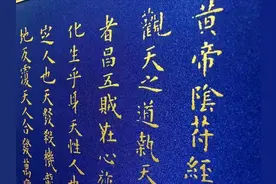 黄帝陰符經
觀天之道執天
者昌五賊在心施
化生乎身天性人也
定人也天發殺機龍
地反覆天人合發萬